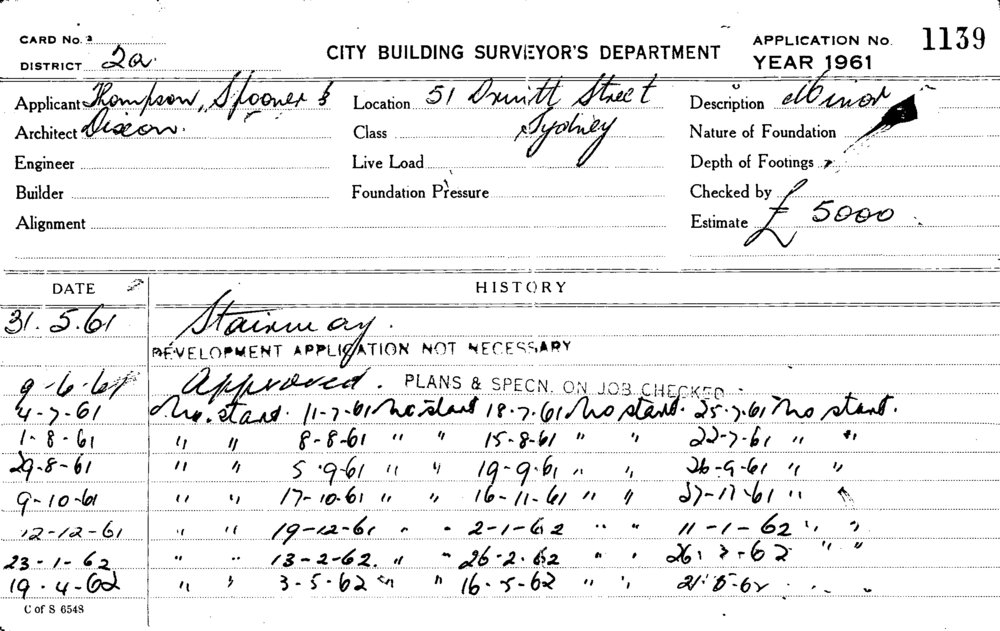 CARD No. 2
DISTRICT 2a.
CITY BUILDING SURVEYOR'S DEPARTMENT
APPLICATION No. 1139
YEAR 1961
Applicant Thompson, Spooner &
Location 51 Druitt Street
Description Minor
Architect Dixon.
Class Sydney
Nature of Foundation
Engineer
Live Load
Depth of Footings
Builder
Foundation Pressure
Checked by
Alignment
Estimate £ 5000
DATE HISTORY
31. 5. 61 Stairway.
DEVELOPMENT APPLICATION NOT NECESSARY
9-6-61 Approved. PLANS & SPECN. ON JOB CHECKED
4-7-61 No. start. 11-7-61 No start 18.7.61 No start. 25.7.61 No start.
1-8-61 " " 8-8-61 " " 15-8-61 " " 22-7-61 " "
29-8-61 " " 5.9-61 " " 19-9-61 " " 26-9-61 " "
9-10-61 " " 17-10-61 " " 16-11-61 " " 27-11-61 " "
12-12-61 " " 19-12-61 " " 2-1-62 " " 11-1-62 " "
23-1-62 " " 13-2-62. " " 26-2-62 " " 26.3-62 " "
19.4-62 " " 3-5-62 " " 16-5-62 " " 21.5-62
C of S 6548